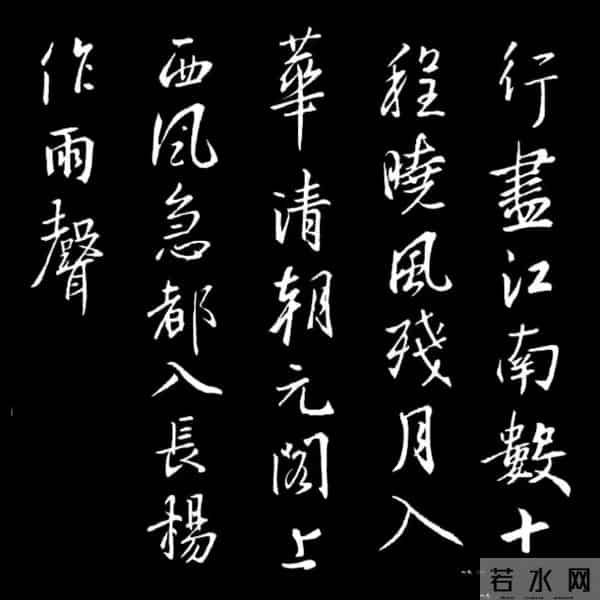 行盡江南數十
程曉風殘月入
華清朝元閣上
西风急都入長楊
作雨聲
若水网